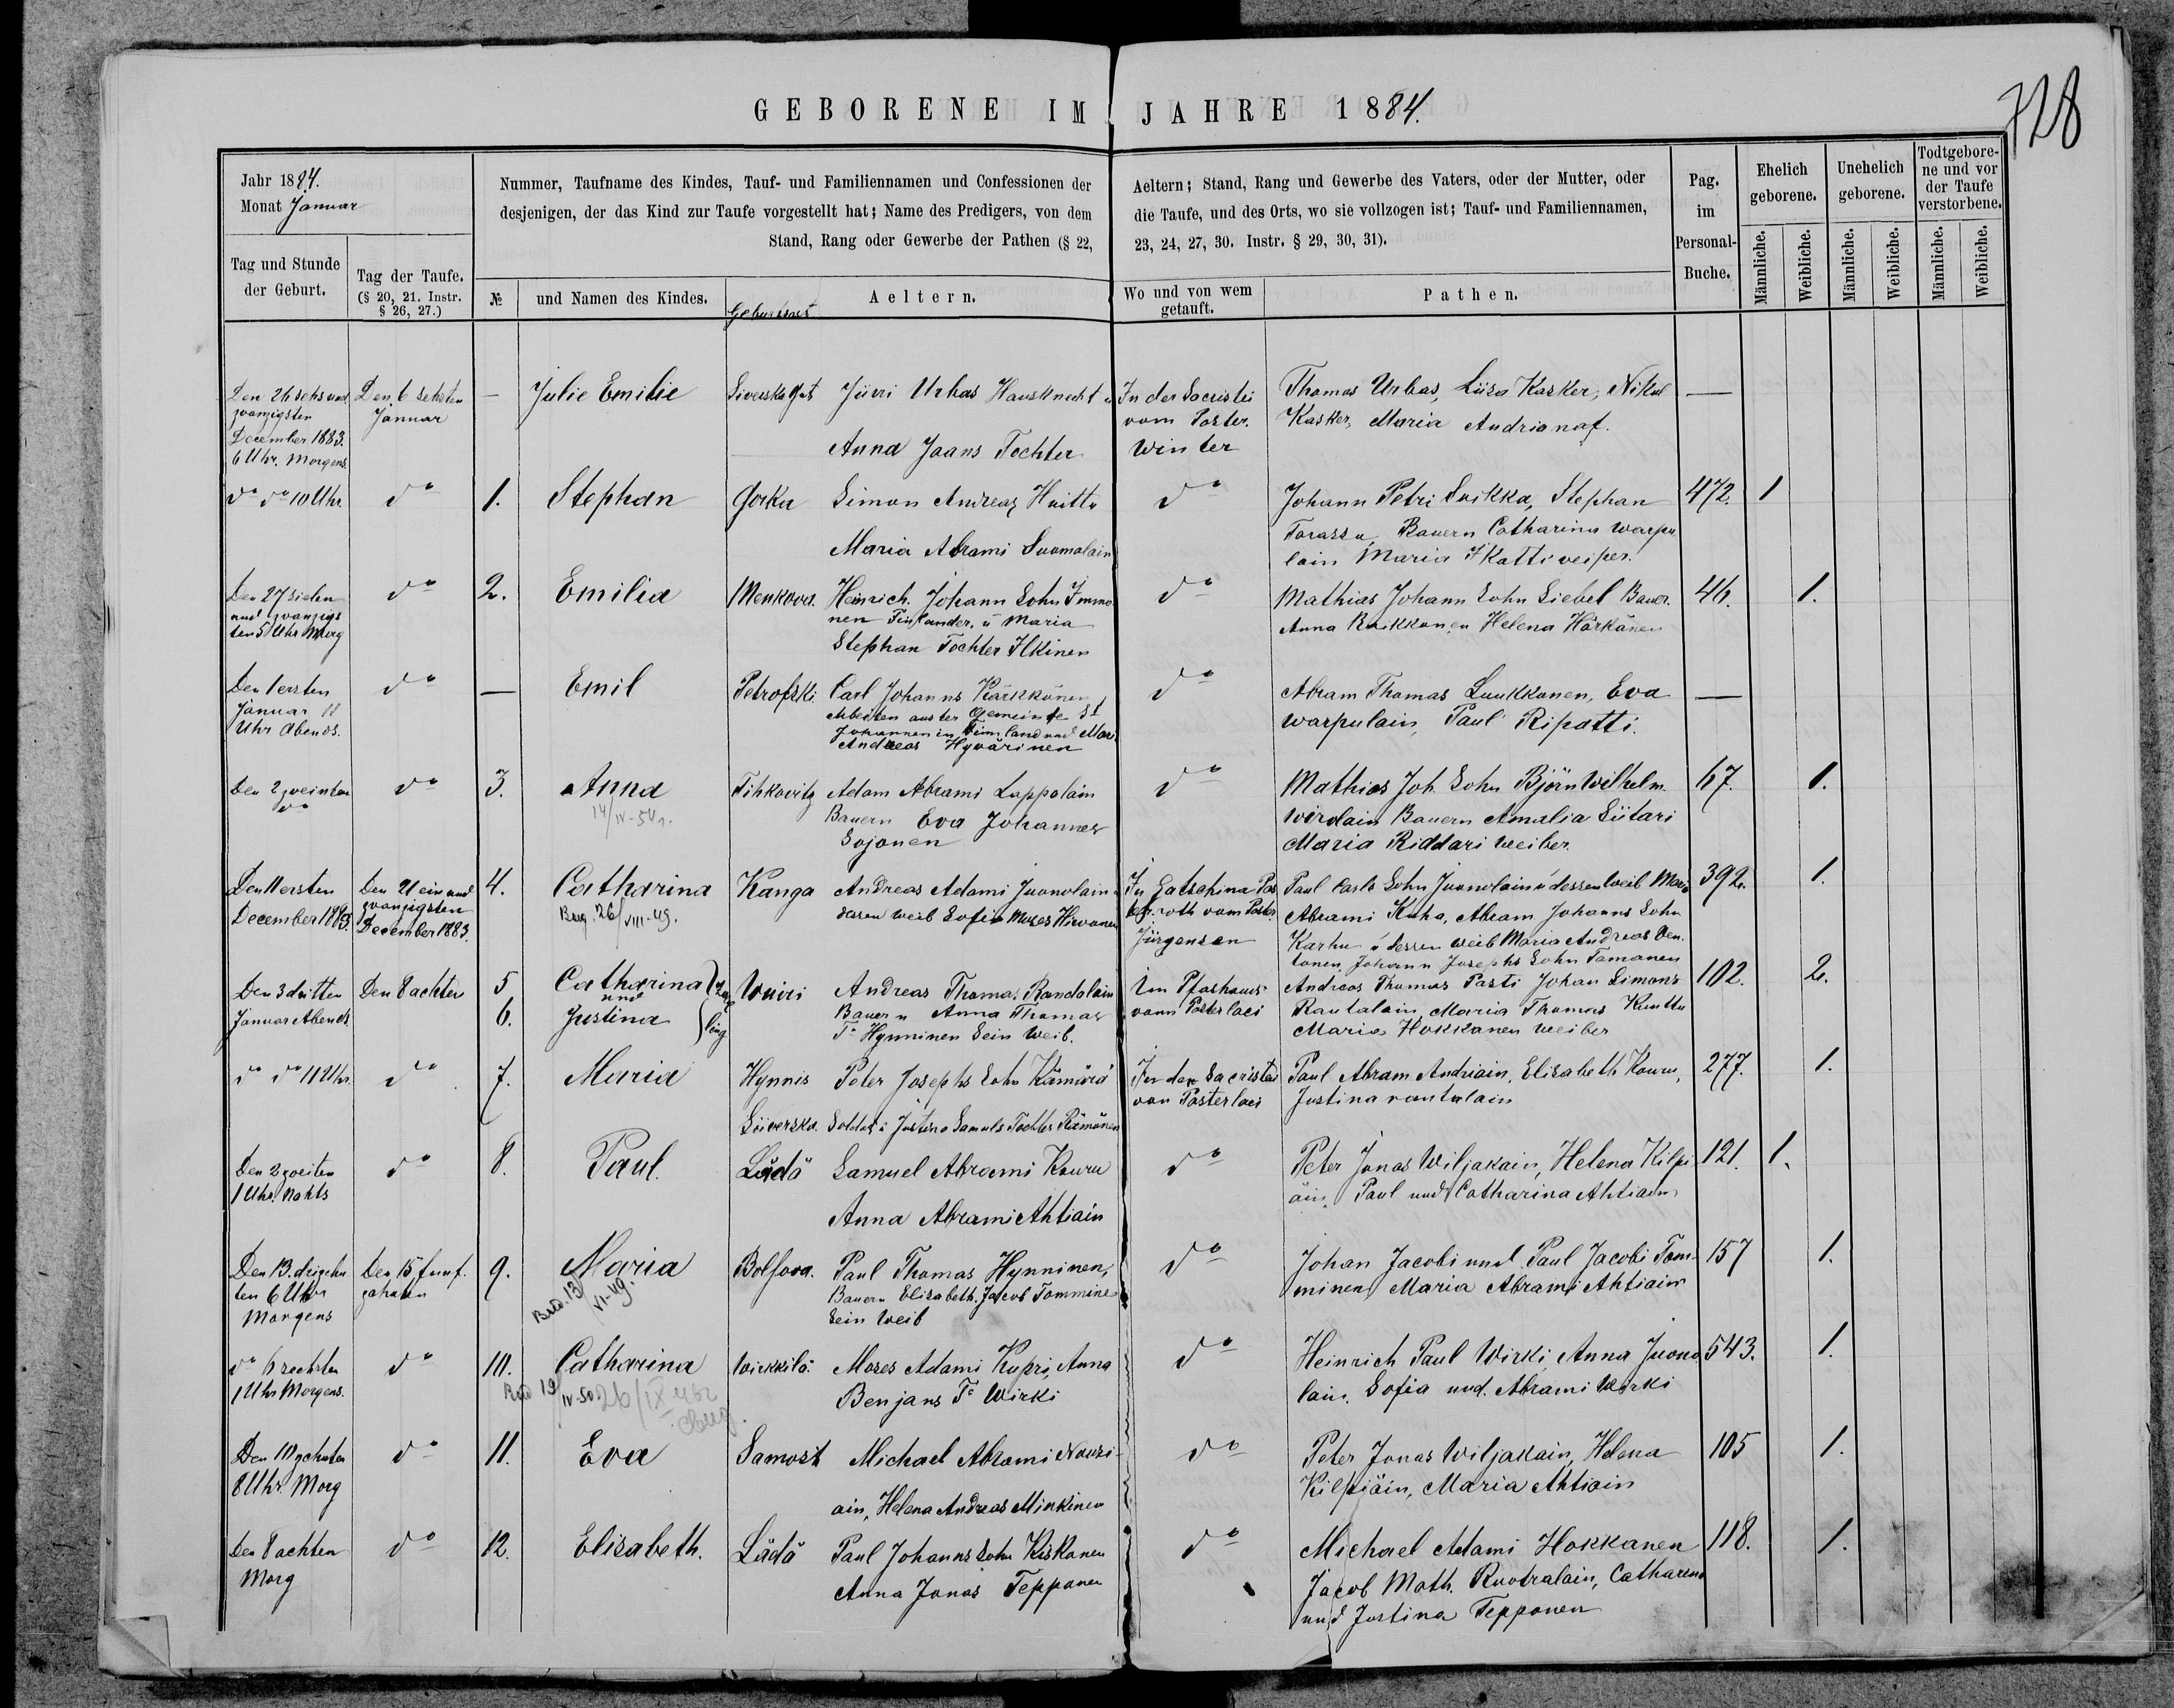 GEBORENE IM JAHRE 1884.
728
Jahr 1884.
Monat Januar
Nummer, Taufname des Kindes, Tauf- und Familiennamen und Confessionen der
desjenigen, der das Kind zur Taufe vorgestellt hat; Name des Predigers, von dem
Stand, Rang oder Gewerbe der Pathen (§ 22,
Aeltern; Stand, Rang und Gewerbe des Vaters, oder der Mutter, oder
die Taufe, und des Orts, wo sie vollzogen ist; Tauf- und Familiennamen,
23, 24, 27, 30. Instr. § 29, 30, 31).
Pag.
im
Personal-
Buche.
Ehelich
geborene.
Unehelich
geborene.
Todtgebore-
ne und vor
der Taufe
verstorbene.
Männliche.
Weibliche.
Männliche.
Weibliche.
Männliche.
Weibliche.
Tag und Stunde
der Geburt.
Tag der Taufe.
(§ 20, 21. Instr.
§ 26, 27.)
№
und Namen des Kindes.
Aeltern.
Wo und von wem
getauft.
Pathen.
Den 26 sehs und
zvanzigsten
December 1883.
6 Uhr. Morgens.
Den 6 sehsten
Januar
—
Julie Emilie
Jüri Urbas Hausknecht u
Anna Jaans Tochter
In der Sacristei
vom Paster.
Winter
Thomas Urbas, Liisa Kasker, Nikol
Kasker, Maria Andrianaf.
—
do do 10 Uhr.
do
1.
Stephan
Gorka
Simon Andreas Huittu
Maria Abrami Suomalain
do
Johann Petri Suikka, Stephan
Tarassu, Bauern Catharina Warpu
lain Maria Katti veiper.
472.
1
Den 27 sieben
und zvanzigs
ten 5 Uhr Morg
do
2.
Emilia
Menkova.
Heinrich. Johann Sohn Immo
nen Finlander. u Maria
Stephan Tochter Ilkinen
do
Mathias Johann Sohn Siebel Bauer.
Anna Raikkonen Helena Härkänen
46.
1.
Den 1 ersten
Januar 11
Uhr Abends.
do
—
Emil
Petrofski.
Carl Johanns Kärkkänen
Arbeiten aus der Gemeinde St
Johannen in Finnland und Mar
Andreas Hyvärinen
do
Abram Thomas Luukkonen, Eva
Warpulain, Paul Ripatti.
—
Den 2 zveinten
do
do
3.
Anna
14/IV-50 г.
Tihkovitz
Adam Abrami Lappalain
Bauern Eva Johannes
Sojonen
do
Mathias Joh. Sohn Björn Wilhelm.
Wirolain Bauern Amalia Siitari
Maria Riddari Weiber.
67.
1.
Den 11 ersten
December 1883.
Den 21 ein und
zvanzigsten
December 1883.
4.
Catharina
26/VIII-49.
Kanga
Andreas Adami Juonolain u
deren Weib Sofia Moses Hirvonen
In Gatschina Pas
vom Paster.
Jürgensen
Paul Carls Sohn Juonolain u dessen Weib Maria
Abrami Kuha, Abram Johanns Sohn
Karhu u dessen Weib Maria Andreas
tonen, Johann Josephs Sohn Tamanen
392.
1.
Den 3 dritten
Januar Abends
Den 8 achten
5
6.
Catharina
und
Justina
Zwi
ling
Wuiri
Andreas Thomas Randalain
Bauern Anna Thomas
Tr Hynninen Sein Weib.
Im Pfarhaus
vom Paster laci
Andreas Thomas Pasti Johan Simons
Rautalain, Maria Thomas Kunttu
Maria Hokkanen Weiber
102.
2.
do do 11 Uhr.
do
7.
Maria
Hynnis
Siiverska.
Peter Josephs Sohn Kämärä
Soldat u Justina Samuls Tochter Rämönen
In der Sacristei
von Paster laci
Paul Abram Andriain, Elisabeth Kouru,
Justina rantalain
277.
1.
Den 2 zveiten
1 Uhr. Nahts
do
8.
Paul.
Lädä
Samuel Abrami Kouru
Anna Abrami Ahtiain
do
Peter Jonas Wiljakain, Helena Kilpi
äin, Paul und Catharina Ahtiain
121.
1.
Den 13. drizehn
ten 6 Uhr
Morgens
Den 15 funf
zehnten
9.
Maria
13/VI-49.
Bolsova.
Paul Thomas Hynninen,
Bauern Elisabeth. Jacob Tommine
Sein Weib
do
Johan Jacobi und Paul Jacobi Tom-
minen Maria Abrami Ahtiain
157
1.
do 6 zechsten
1 Uhr Morgens.
do
10.
Catharina
19/IV-50. 26/IX
Wirkkilä.
Moses Adami Kupri, Anna
Benjans Tr Wirki
do
Heinrich Paul Wirki Anna Juono
lain. Sofia und. Abrami Wirki
543.
1.
Den 10 zehnten
8 Uhr. Morg
do
11.
Eva
Samost
Michael Abrami Nousi-
ain, Helena Andreas Minkinen
do
Peter Jonas Wiljakain, Helena
Kilpiäin, Maria Ahtiain
105
1.
Den 8 achten
Morg
do
12.
Elisabeth.
Lädä
Paul Johanns Sohn Kiskonen
Anna Jonas Tepponen
do
Michael Adami Hokkanen
Jacob Math. Ruotsalain, Catharena
und Justina Tepponen
118.
1.